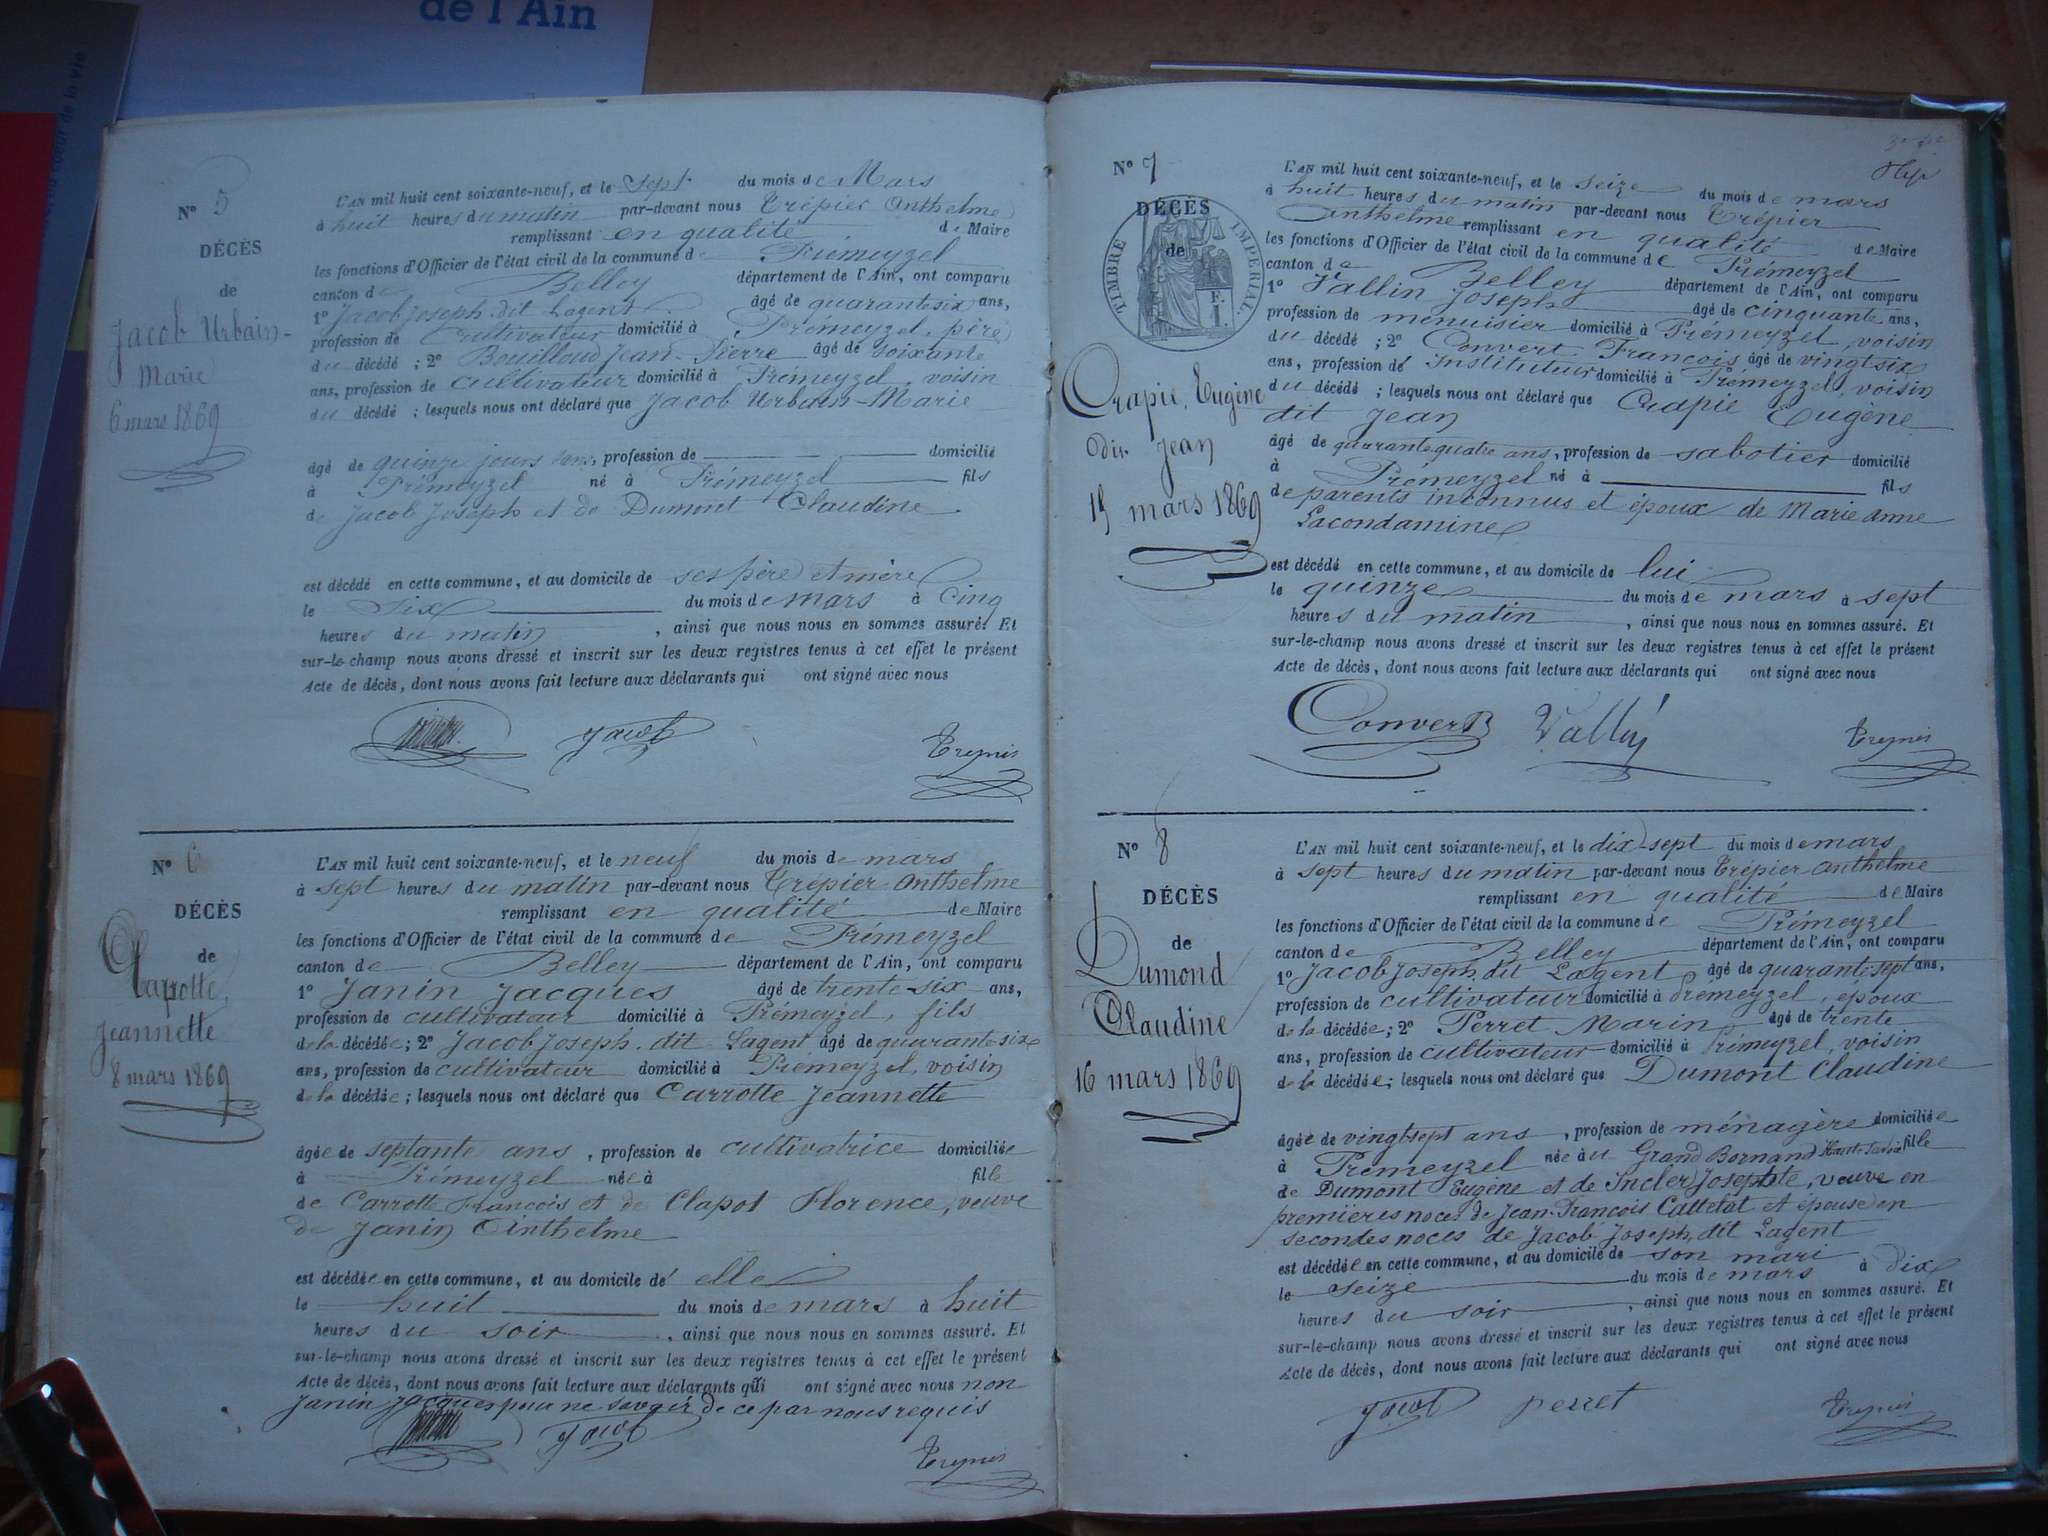 de l'Ain
N° 5
DÉCÈS
de
Jacob Urbain-
Marie
6 mars 1869
L'AN mil huit cent soixante-neuf, et le sept du mois de Mars
à huit heures du matin par-devant nous Trépier Anthelme
remplissant en qualité de Maire
les fonctions d'Officier de l'état civil de la commune de Prémeyzel
canton de Belley département de l'Ain, ont comparu
1° Jacob Joseph, dit Lagent âgé de quarante six ans,
profession de Cultivateur domicilié à Prémeyzel, père
du décédé ; 2° Bouilloud Jean-Pierre âgé de soixante
ans, profession de cultivateur domicilié à Prémeyzel, voisin
du décédé ; lesquels nous ont déclaré que Jacob Urbain-Marie
âgé de quinze jours, profession de domicilié
à Prémeyzel né à Prémeyzel fils
de Jacob Joseph et de Dumont Claudine
est décédé en cette commune, et au domicile de ses père et mère
le six du mois de mars à cinq
heures du matin, ainsi que nous nous en sommes assuré. Et
sur-le-champ nous avons dressé et inscrit sur les deux registres tenus à cet effet le présent
Acte de décès, dont nous avons fait lecture aux déclarants qui ont signé avec nous
Jacob
N° 6
DÉCÈS
de
Carrotte,
Jeannette
8 mars 1869
L'AN mil huit cent soixante-neuf, et le neuf du mois de mars
à sept heures du matin par-devant nous Trépier Anthelme
remplissant en qualité de Maire
les fonctions d'Officier de l'état civil de la commune de Prémeyzel
canton de Belley département de l'Ain, ont comparu
1° Janin Jacques âgé de trente-six ans,
profession de cultivateur domicilié à Prémeyzel, fils
de la décédée ; 2° Jacob Joseph, dit Lagent âgé de quarante six
ans, profession de cultivateur domicilié à Prémeyzel, voisin
de la décédée ; lesquels nous ont déclaré que Carrotte Jeannette
âgée de septante ans, profession de cultivatrice domiciliée
à Prémeyzel née à fille
de Carrotte François et de Clapot Florence, veuve
de Janin Anthelme
est décédée en cette commune, et au domicile de elle
le huit du mois de mars à huit
heures du soir, ainsi que nous nous en sommes assuré. Et
sur-le-champ nous avons dressé et inscrit sur les deux registres tenus à cet effet le présent
Acte de décès, dont nous avons fait lecture aux déclarants qui ont signé avec nous non
Janin Jacques pour ne savoir de ce par nous requis
Jacob
N° 7
DÉCÈS
de
TIMBRE IMPÉRIAL
Crapie, Eugène
dit Jean
15 mars 1869
L'AN mil huit cent soixante-neuf, et le seize du mois de mars
à huit heures du matin par-devant nous Trépier
Anthelme remplissant en qualité de Maire
les fonctions d'Officier de l'état civil de la commune de Prémeyzel
canton de Belley département de l'Ain, ont comparu
1° Vallin Joseph âgé de cinquante ans,
profession de menuisier domicilié à Prémeyzel, voisin
du décédé ; 2° Convert François âgé de vingt six
ans, profession de Instituteur domicilié à Prémeyzel, voisin
du décédé ; lesquels nous ont déclaré que Crapie Eugène
dit Jean
âgé de quarante quatre ans, profession de sabotier domicilié
à Prémeyzel né à fils
de parents inconnus et époux de Marie Anne
Lacondamine
est décédé en cette commune, et au domicile de lui
le quinze du mois de mars à sept
heures du matin, ainsi que nous nous en sommes assuré. Et
sur-le-champ nous avons dressé et inscrit sur les deux registres tenus à cet effet le présent
Acte de décès, dont nous avons fait lecture aux déclarants qui ont signé avec nous
Convert Vallin
N° 8
DÉCÈS
de
Dumond
Claudine
16 mars 1869
L'AN mil huit cent soixante-neuf, et le dix-sept du mois de mars
à sept heures du matin par-devant nous Trépier Anthelme
remplissant en qualité de Maire
les fonctions d'Officier de l'état civil de la commune de Prémeyzel
canton de Belley département de l'Ain, ont comparu
1° Jacob Joseph, dit Lagent âgé de quarante sept ans,
profession de cultivateur domicilié à Prémeyzel, époux
de la décédée ; 2° Perret Marin âgé de trente
ans, profession de cultivateur domicilié à Prémeyzel, voisin
de la décédée ; lesquels nous ont déclaré que Dumont Claudine
âgée de vingt sept ans, profession de ménagère domiciliée
à Prémeyzel née au Grand Bornand Haute Savoie fille
de Dumont Eugène et de Josephte, veuve en
premières noces de Jean-François Cattelat et épouse en
secondes noces de Jacob Joseph, dit Lagent
est décédée en cette commune, et au domicile de son mari
le seize du mois de mars à dix
heures du soir, ainsi que nous nous en sommes assuré. Et
sur-le-champ nous avons dressé et inscrit sur les deux registres tenus à cet effet le présent
Acte de décès, dont nous avons fait lecture aux déclarants qui ont signé avec nous
Jacob Perret